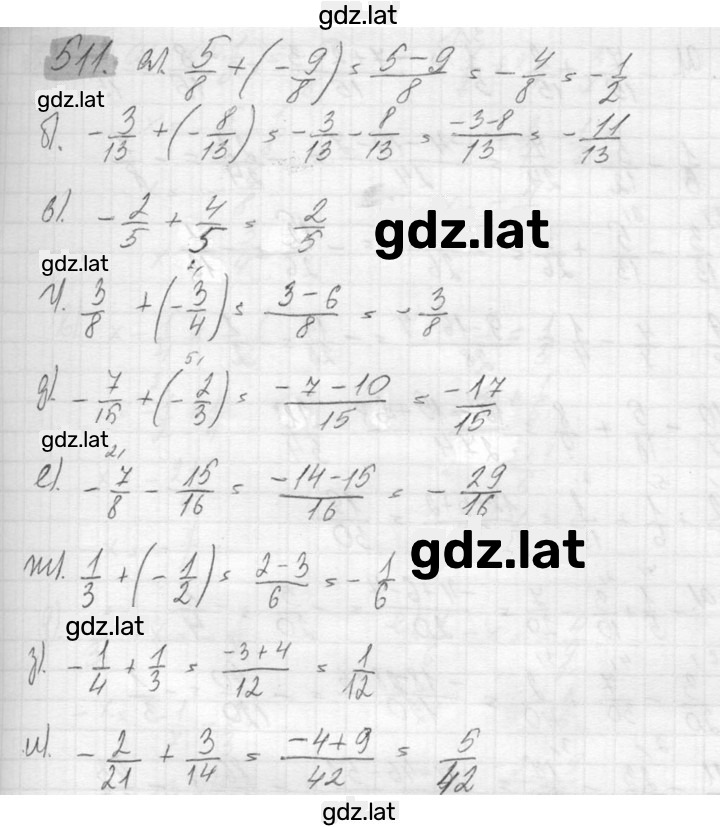 gdz.lat
511. а). 5/8 + (-9/8) = 5-9/8 = -4/8 = -1/2
gdz.lat
б). -3/13 + (-8/13) = -3/13 - 8/13 = -3-8/13 = -11/13
в). -2/5 + 4/5 = 2/5
gdz.lat
gdz.lat
г). 3/8 + (-3/4) = 3-6/8 = -3/8
д). -7/15 + (-2/3) = -7-10/15 = -17/15
gdz.lat
е). -7/8 - 15/16 = -14-15/16 = -29/16
gdz.lat
ж). 1/3 + (-1/2) = 2-3/6 = -1/6
gdz.lat
з). -1/4 + 1/3 = -3+4/12 = 1/12
и). -2/21 + 3/14 = -4+9/42 = 5/42
gdz.lat